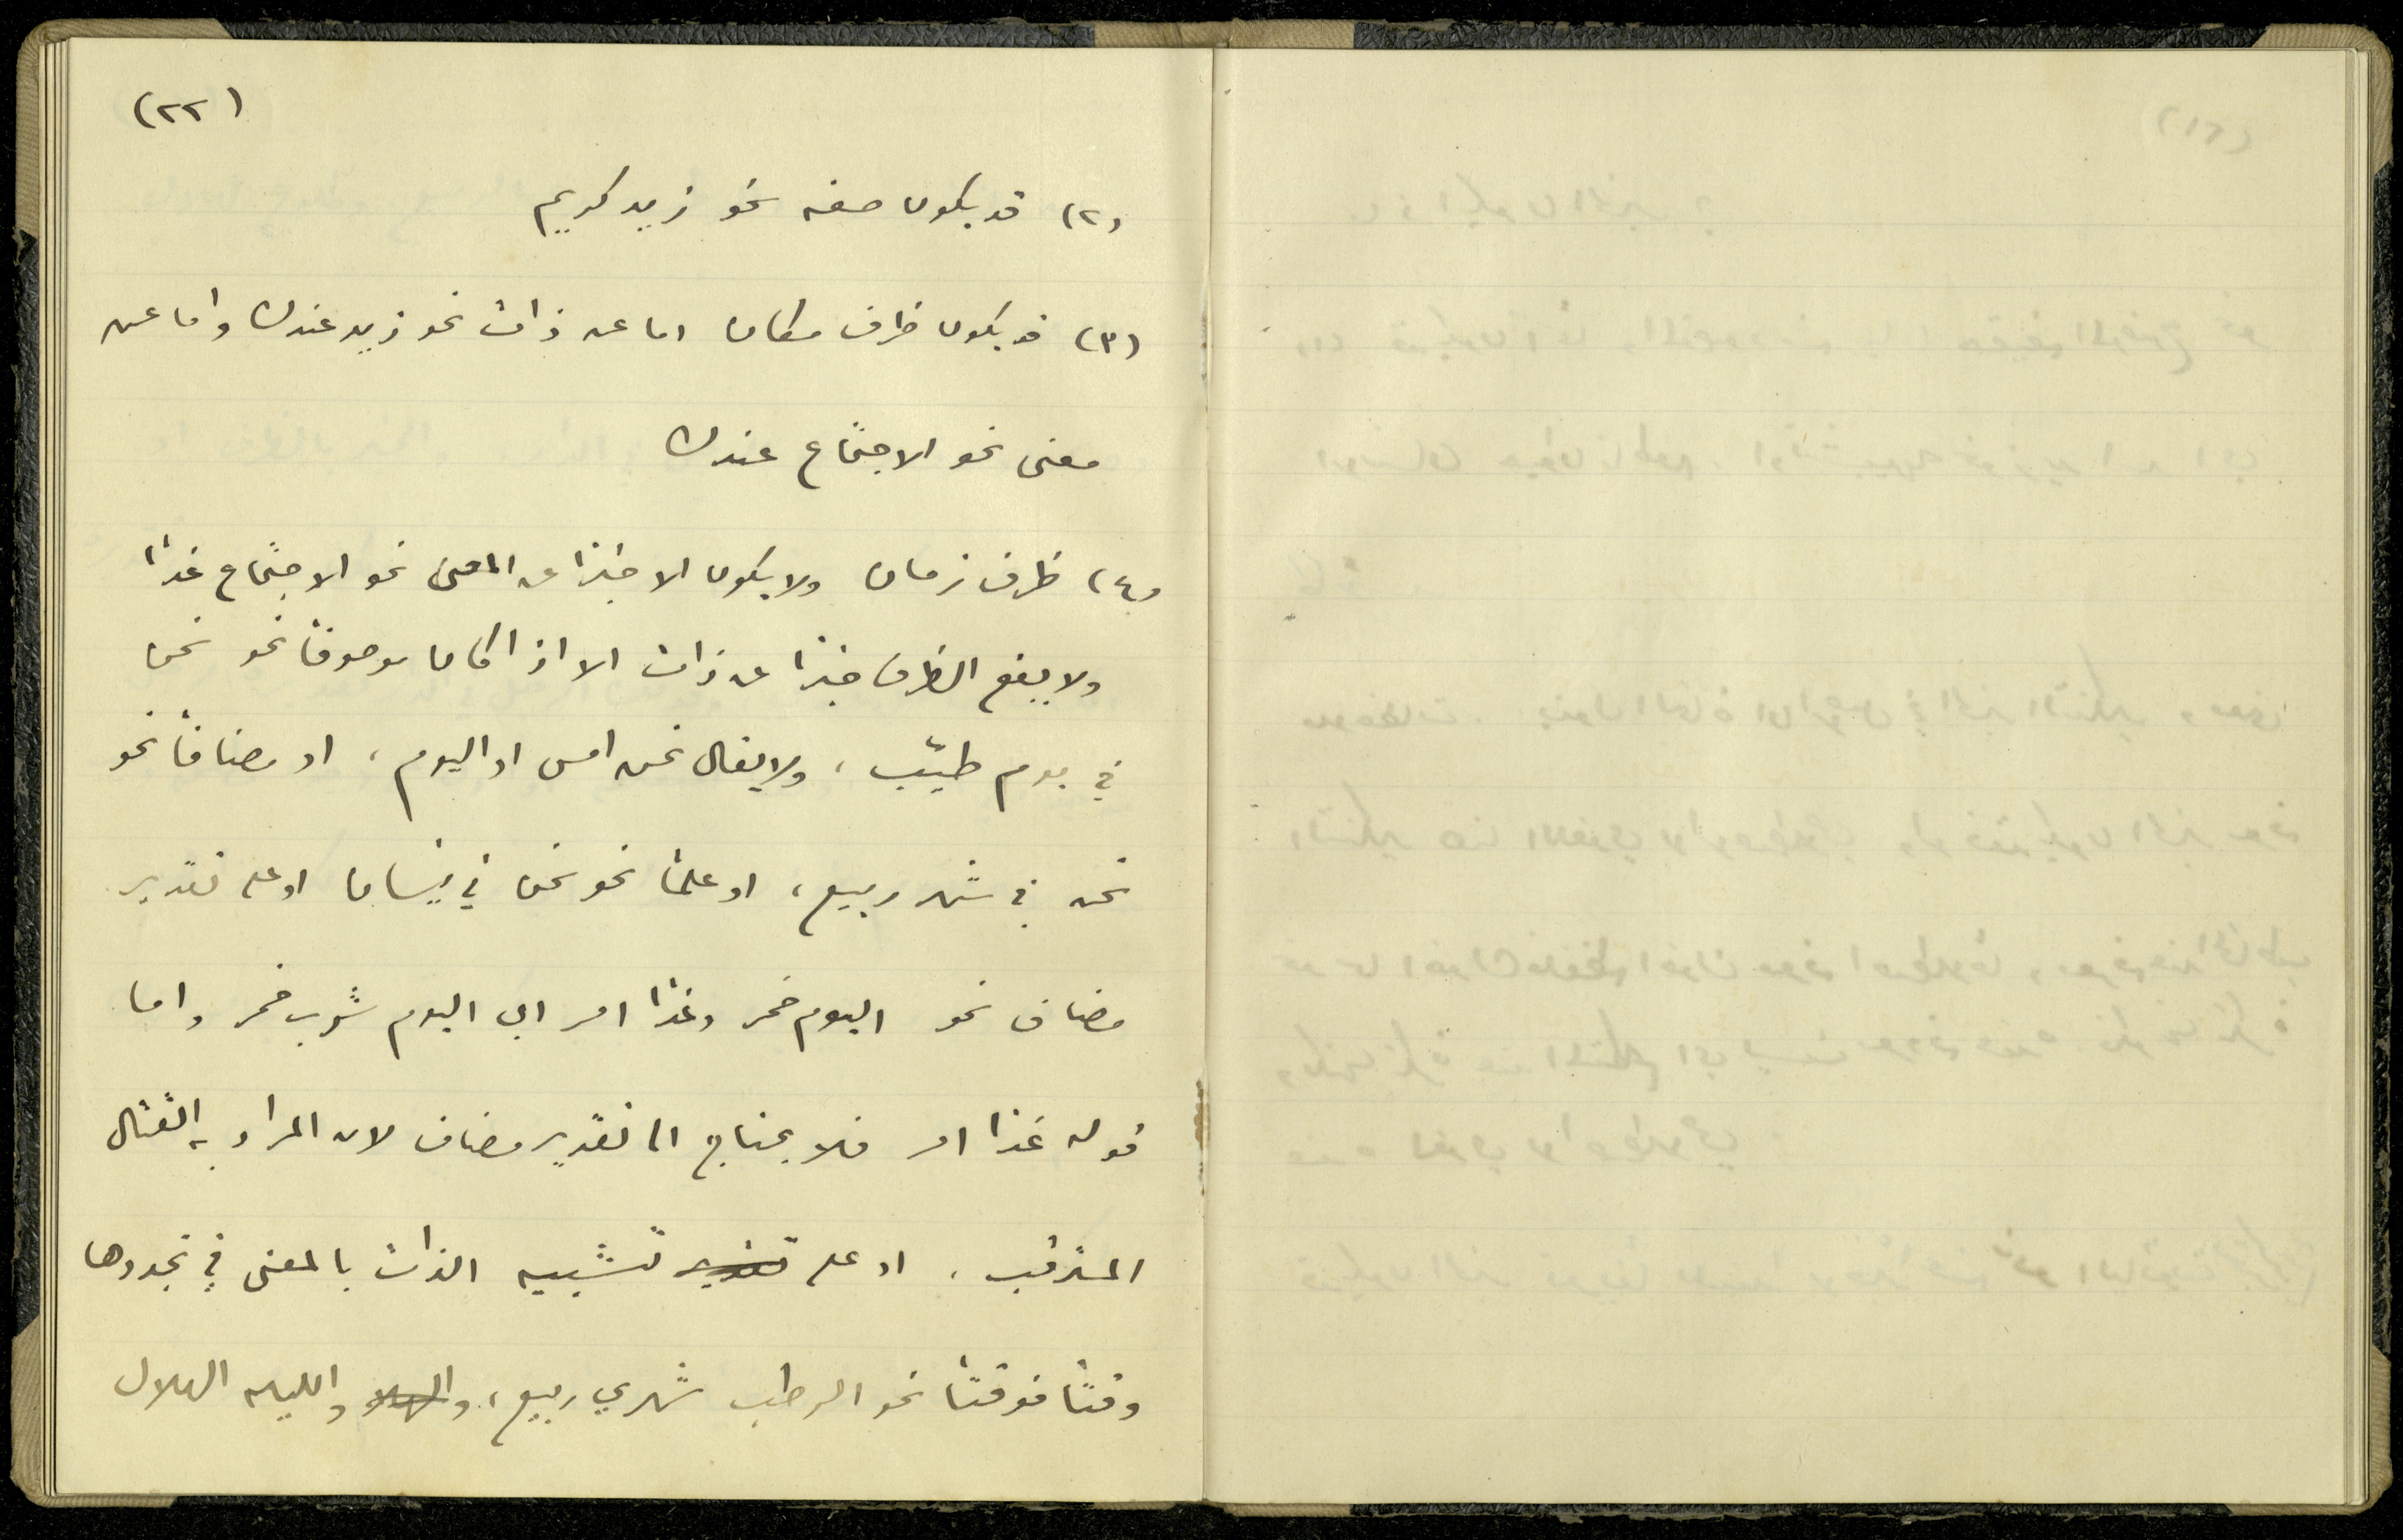 (٢٢)
(٢) قد يكون صفه نحو زيد كريم
(٣) قد يكون ظرف مكان اما عن ذات نحو زيد عندك واما عن
معنى نحو الاجتماع عندك
(٤) ظرف زمان ولا يكون الا خبرًا عن المعنى نحو الاجتماع غدًا
ولا يقع الظرف خبرًا عن ذات الا اذا كان موصوفًا نحو نحن
في يوم طيّب ، ولا يقال نحن امس او اليوم ، او مضافًا نحو
نحن في شهر ربيع ، او علمًا نحو نحن في نيسان او على تقدير
مضاف نحو اليوم خمر وغدًا امر اى اليوم شرب خمر واما
قوله غدًا امر فلا يحتاج الى تقدير مضاف لان المراد به القتال
المترقب ، او على تقدير تشبيه الذات بالمعنى في تجددها
وقتًا فوقتًا نحو الرطب شهري ربيع ، والهلا والليله الهلال